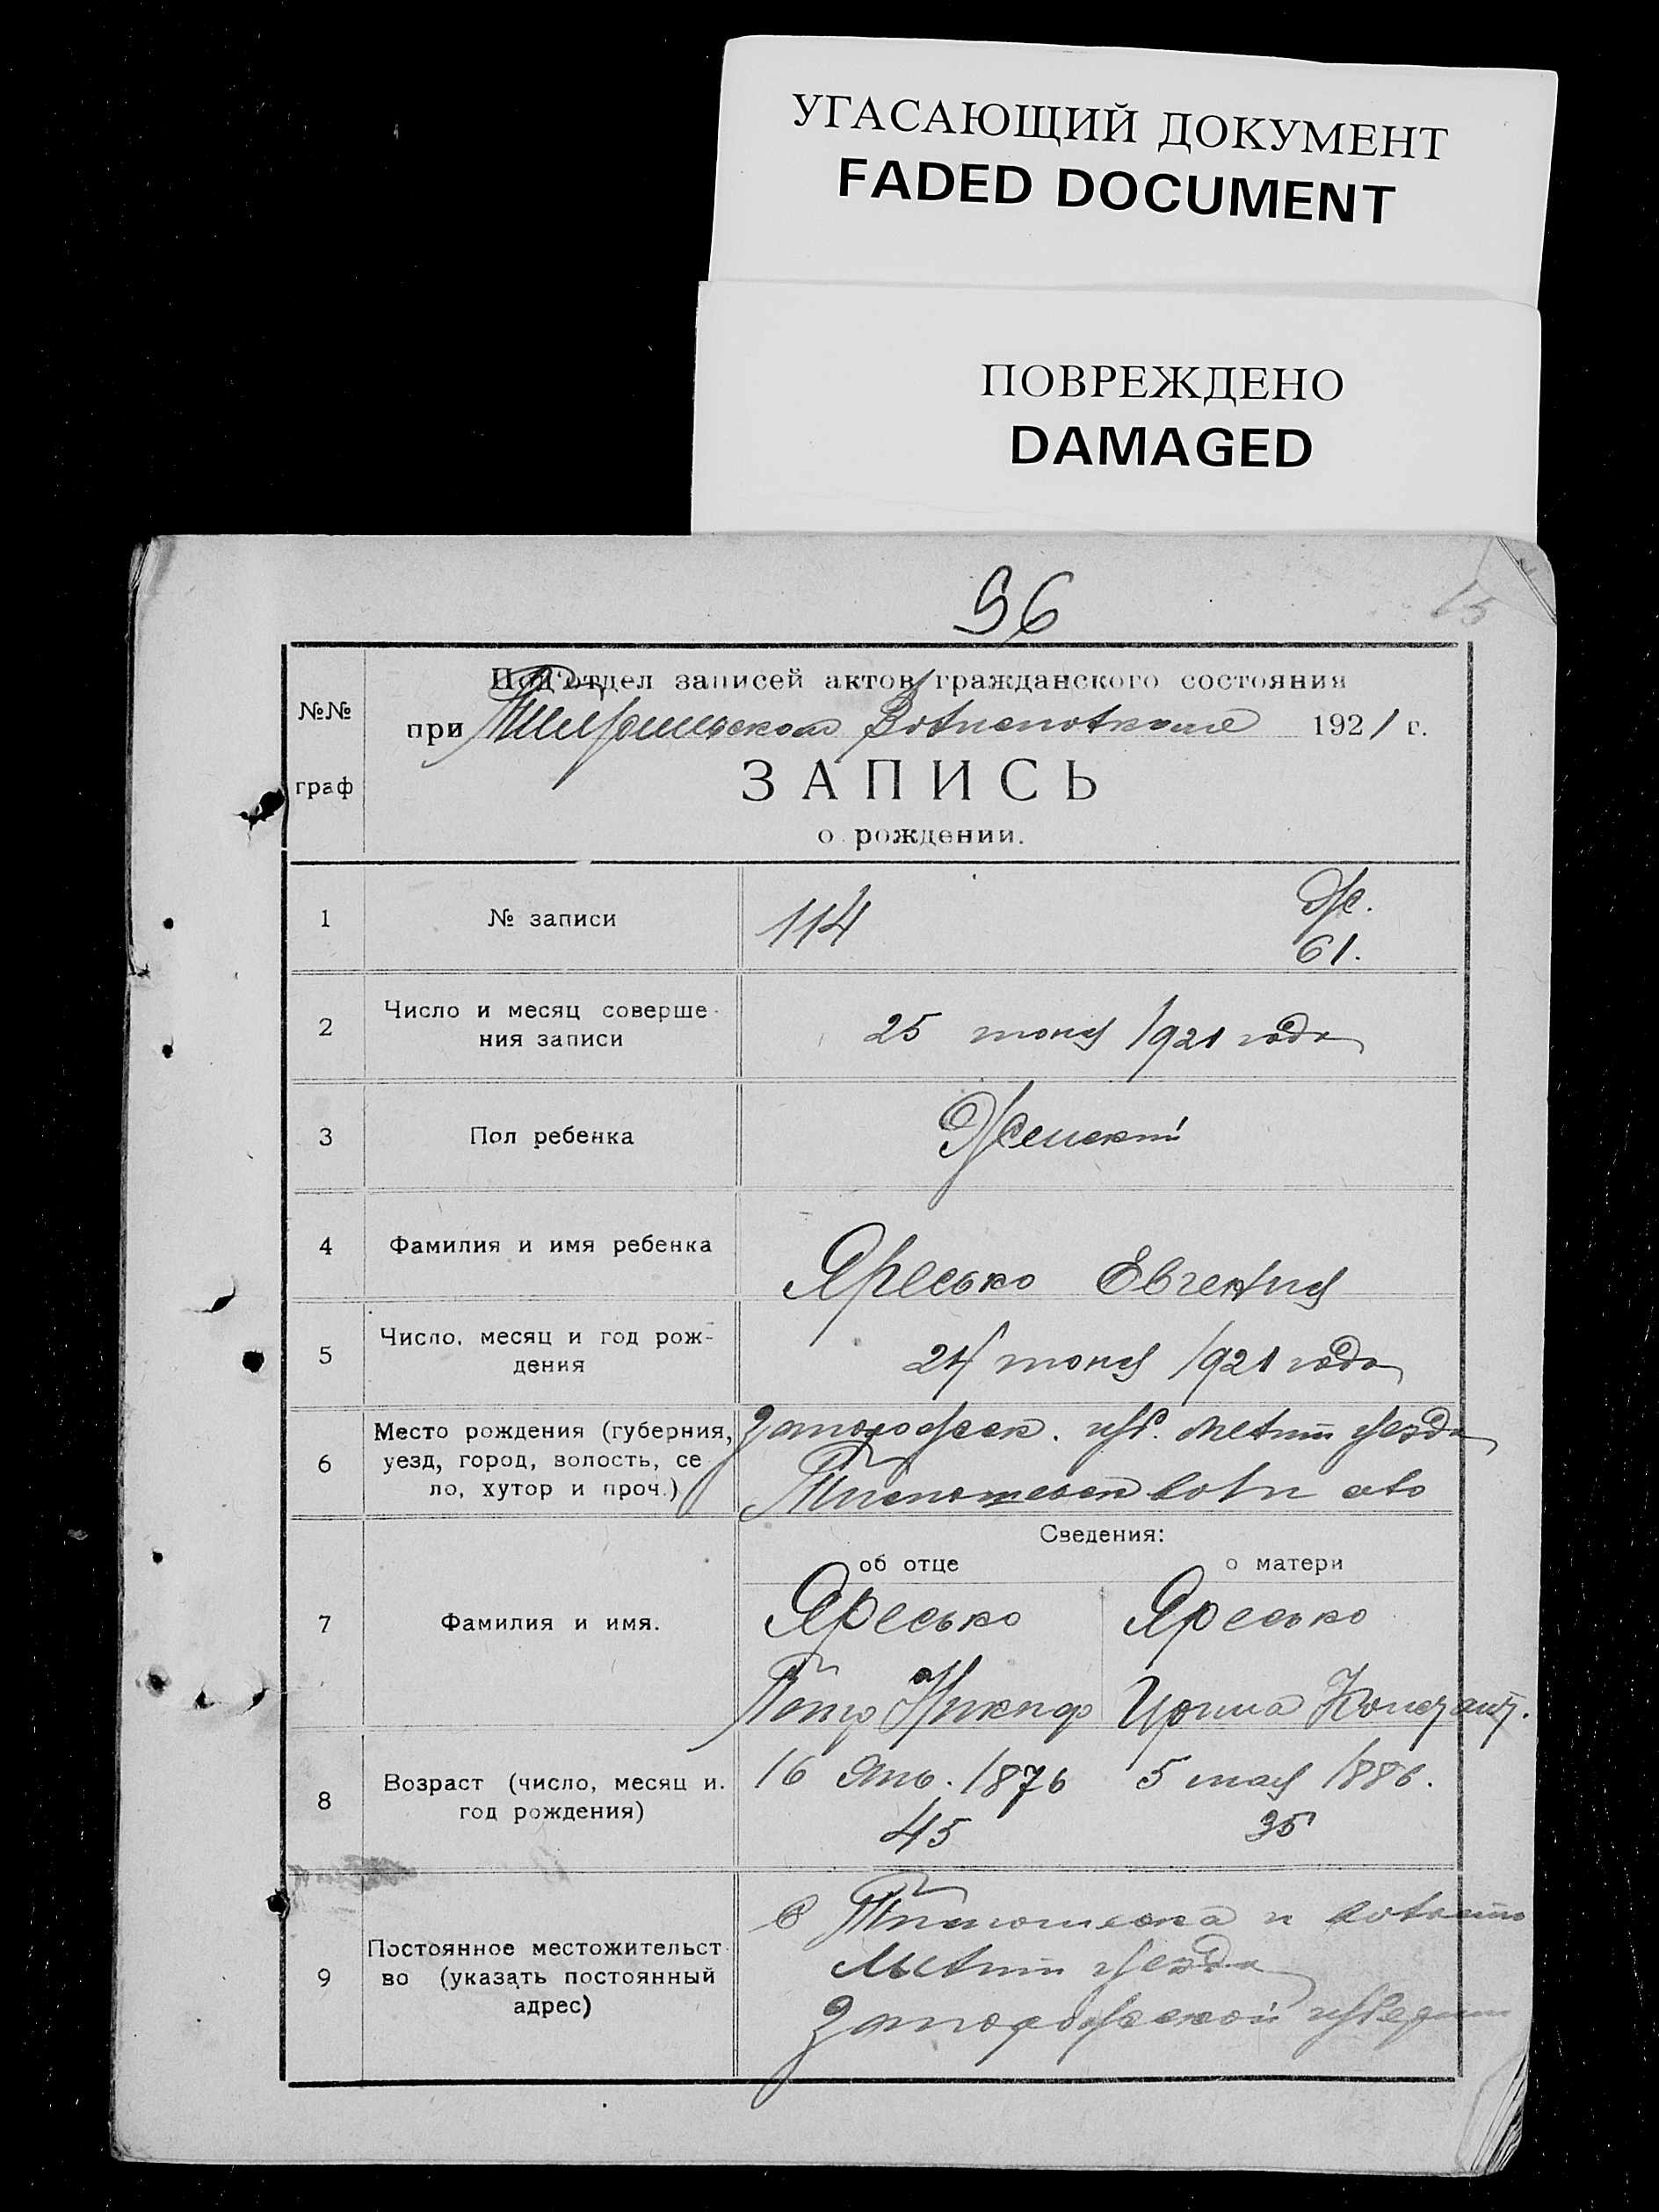 УГАСАЮЩИЙ ДОКУМЕНТ
FADED DOCUMENT
ПОВРЕЖДЕНО
DAMAGED
96
15
Под'отдел записей актов гражданского состояния
№№
при 1921 г.
граф
ЗАПИСЬ
о рождении.
1 № записи 114 Ж.
61.
2 Число и месяц соверше-
ния записи
25 июня 1921 года
3 Пол ребенка Женский
4 Фамилия и имя ребенка Яресько Евгения
5 Число, месяц и год рож-
дения
24 июня 1921 года
6 Место рождения (губерния,
уезд, город, волость, се
ло, хутор и проч.)
губ. уезда
Сведения:
об отце о матери
7 Фамилия и имя. Яресько Яресько
Петр Никиф Ирина
8 Возраст (число, месяц и.
год рождения)
16 Янв. 1876 5 мая 1886.
45 35
9 Постоянное местожительст
во (указать постоянный
адрес)
уезда
Запорожской